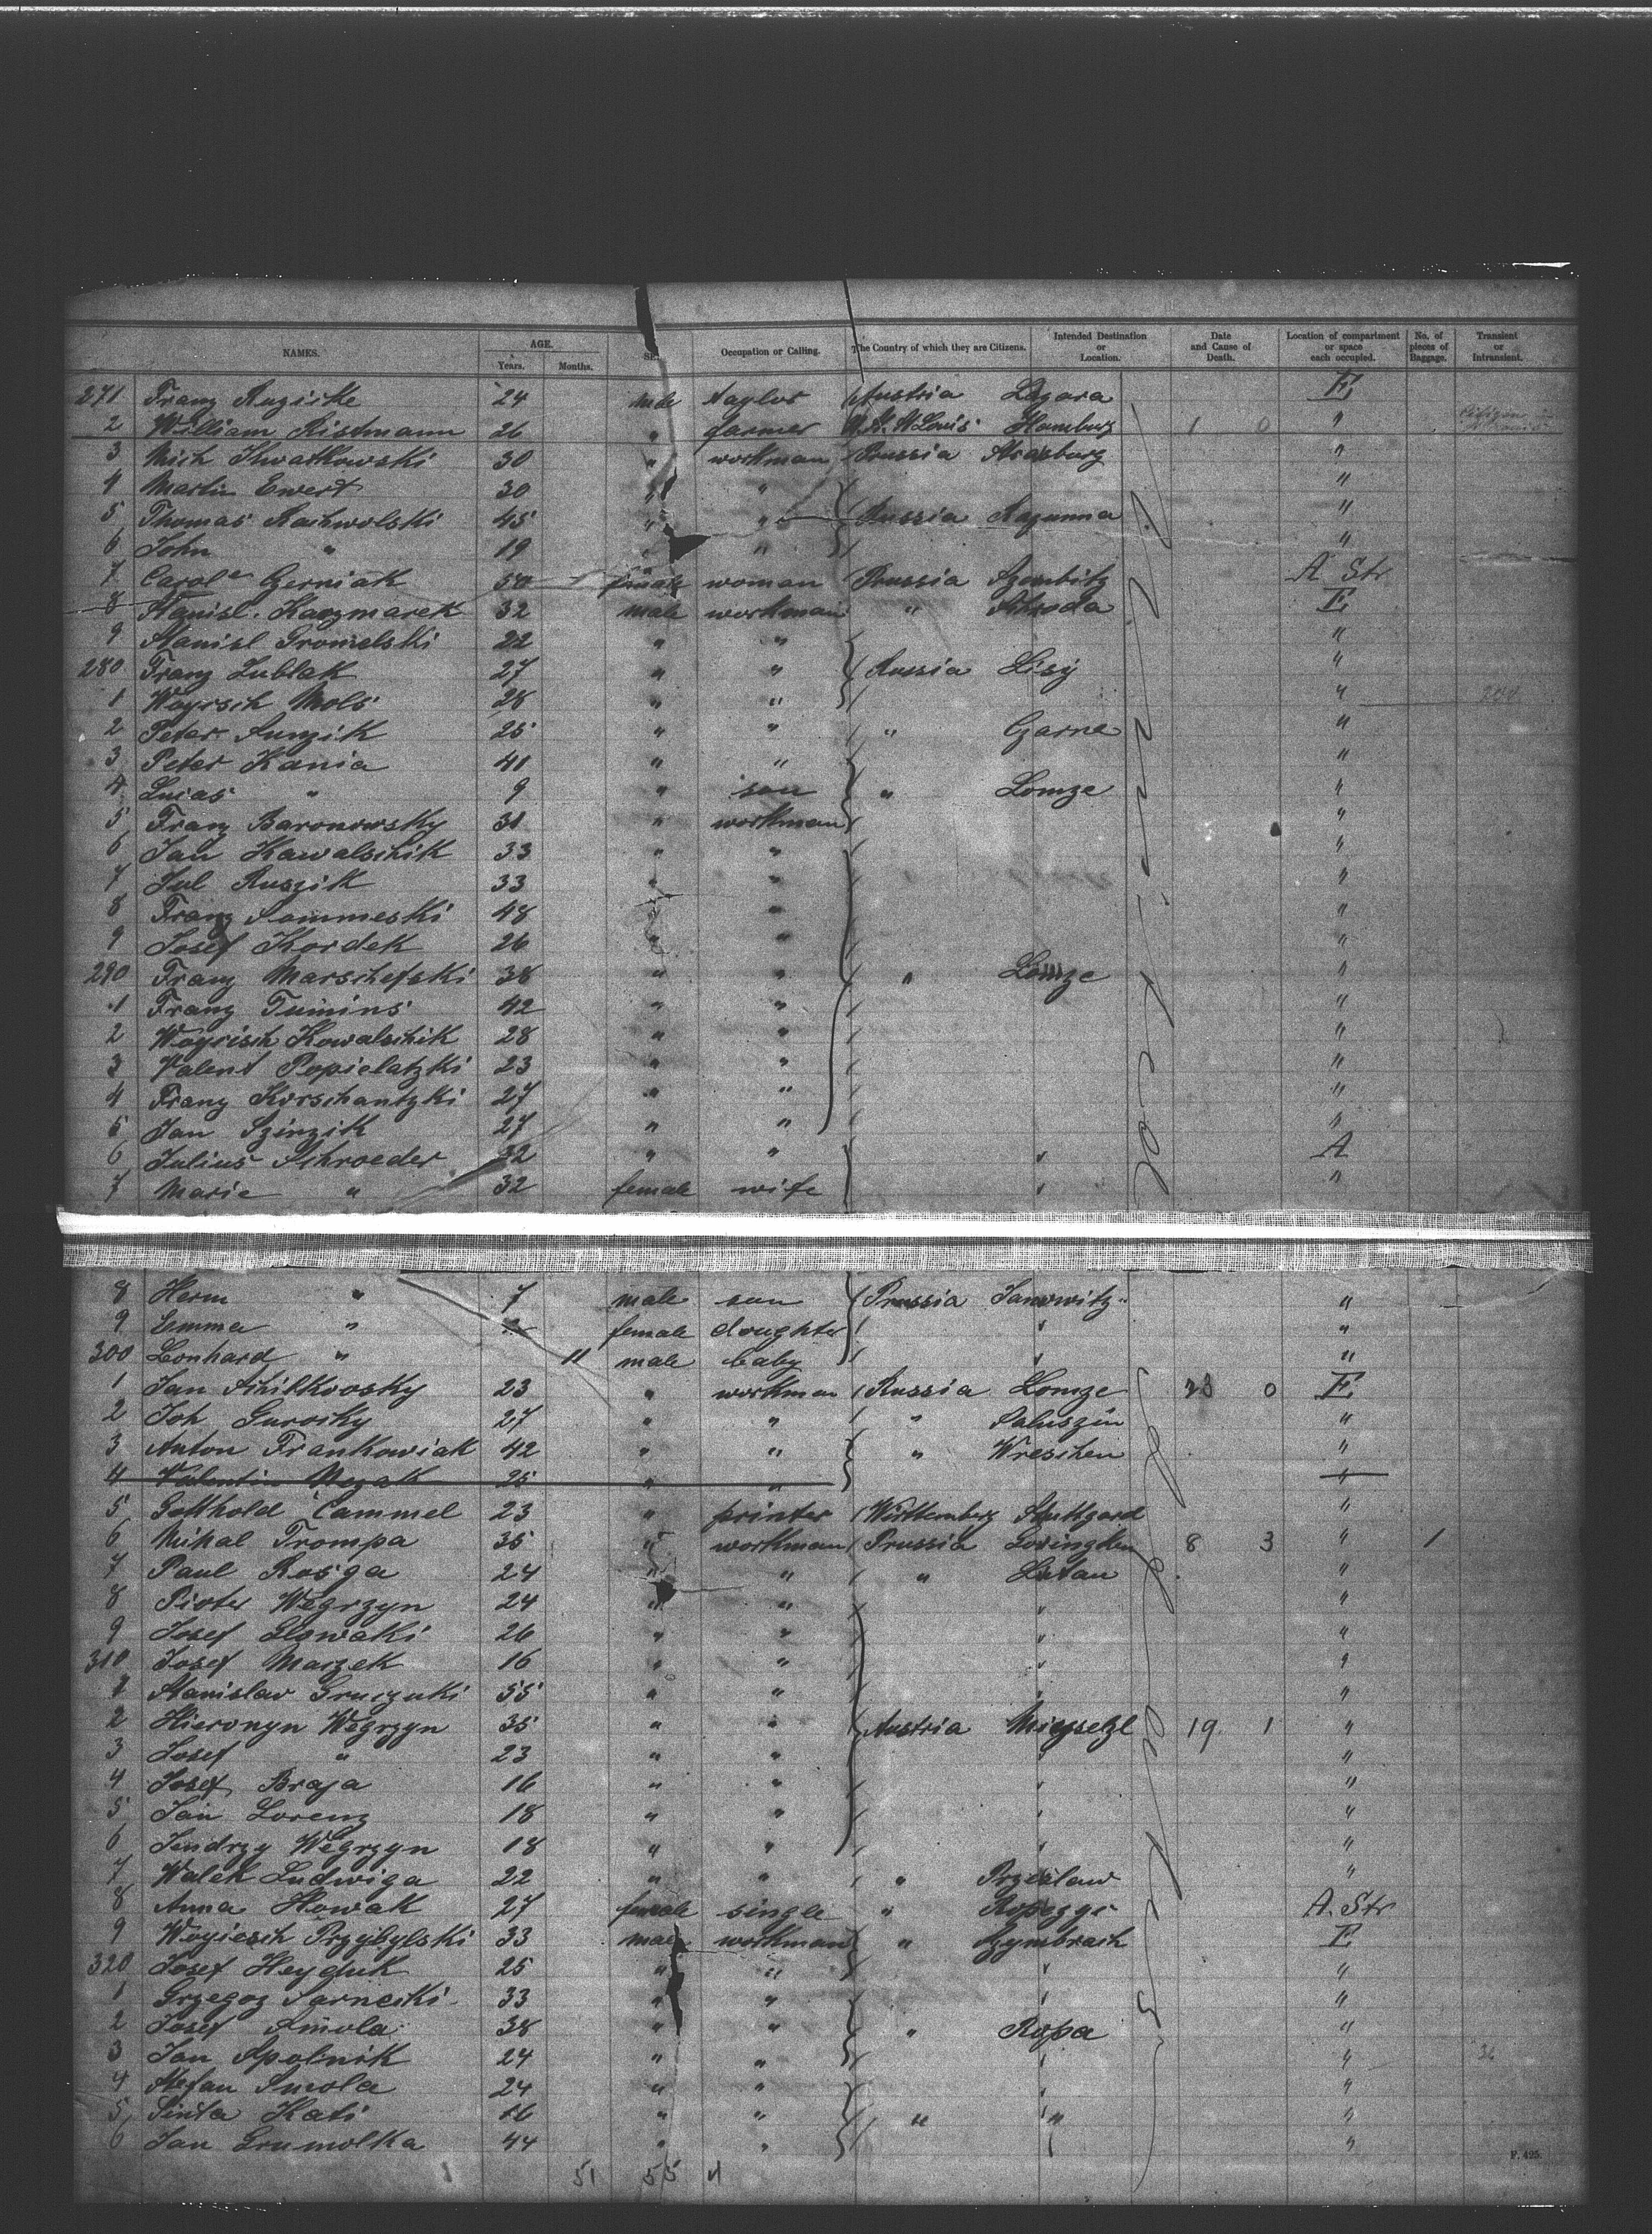 NAMES. AGE. Years. Months. SE Occupation or Calling. The Country of which they are Citizens. Intended Destination or Location. Date and Cause of Death. Location of compartment or space each occupied. No. of pieces of Baggage. Transient or Intransient.
271 Franz Ruzicke 24 male taylor Austria E
2 William Ristmann 26 " farmer Hamburg 1 0 "
3 Mich Kwatkowski 30 " workman Prussia Strasburg "
4 Martin Ewert 30 " " "
5 Thomas Rachwolski 45 " " Russia "
6 John " 19 " " "
7 Carole Czerniak 50 female woman Prussia A Str
8 Stanisl. Kaczmarek 32 male workman " Schroda E
9 Stanisl 22 " " "
280 Franz Lublak 27 " " Russia Lisy "
1 Woyisch Mols 28 " " "
2 Peter 25 " " " Garne "
3 Peter Kania 41 " " "
4 Lucas " 9 " son " Lomze "
5 Franz Baronowsky 31 " workman "
6 Jan Kawalschik 33 " " "
7 Jul Ruszik 33 " " "
8 Franz Sommeski 48 " " "
9 Josef Kordek 26 " " "
290 Franz Marschefski 38 " " " Lomze "
1 Franz Tumins 42 " " "
2 Woyisch Kowalschik 28 " " "
3 Valent Popielatzki 23 " " "
4 Franz Korschantzki 27 " " "
5 Jan Szinzik 27 " " "
6 Julius Schroeder 32 " " " A
7 Marie " 32 female wife " "
8 Herm " 7 male son Prussia Janowitz "
9 Emma " female doughter " "
300 Leonhard " 11 male baby " "
1 Jan 23 " workman Russia Lomze 23 0 E
2 Joh Gurosky 27 " " " "
3 Anton Frankowiak 42 " " " Wreschen "
4 Valentin 25 " " "
5 Gotthold Cammel 23 " printer Württemberg Stuttgard "
6 Mihal Trompa 35 " workman Prussia 8 3 " 1
7 Paul Rosga 24 " " " "
8 Pioter Wegrzyn 24 " " " "
9 Josef Slowaki 26 " " " "
310 Josef Marzek 16 " " " "
1 Stanislav 55 " " " "
2 Hieronyn Wegrzyn 35 " " Austria 19 1 "
3 Josef " 23 " " " "
4 Josef Braja 16 " " " "
5 Jan Lorenz 18 " " " "
6 Jendrzy Wegrzyn 18 " " " "
7 Walek Ludwiga 22 " " " Przeslaw "
8 Anna Nowak 27 female single " A. Str
9 Woyiech Przybylski 33 male workman " E
320 Josef Heyduk 25 " " " "
1 Grzegoz Sarnecki 33 " " " "
2 Josef Smola 38 " " " Ropa "
3 Jan Spolnik 24 " " " "
4 Stefan Smola 24 " " " "
5 Kati 16 " " " " "
6 Jan Grumolka 44 " " "
51 55 4
F. 425.